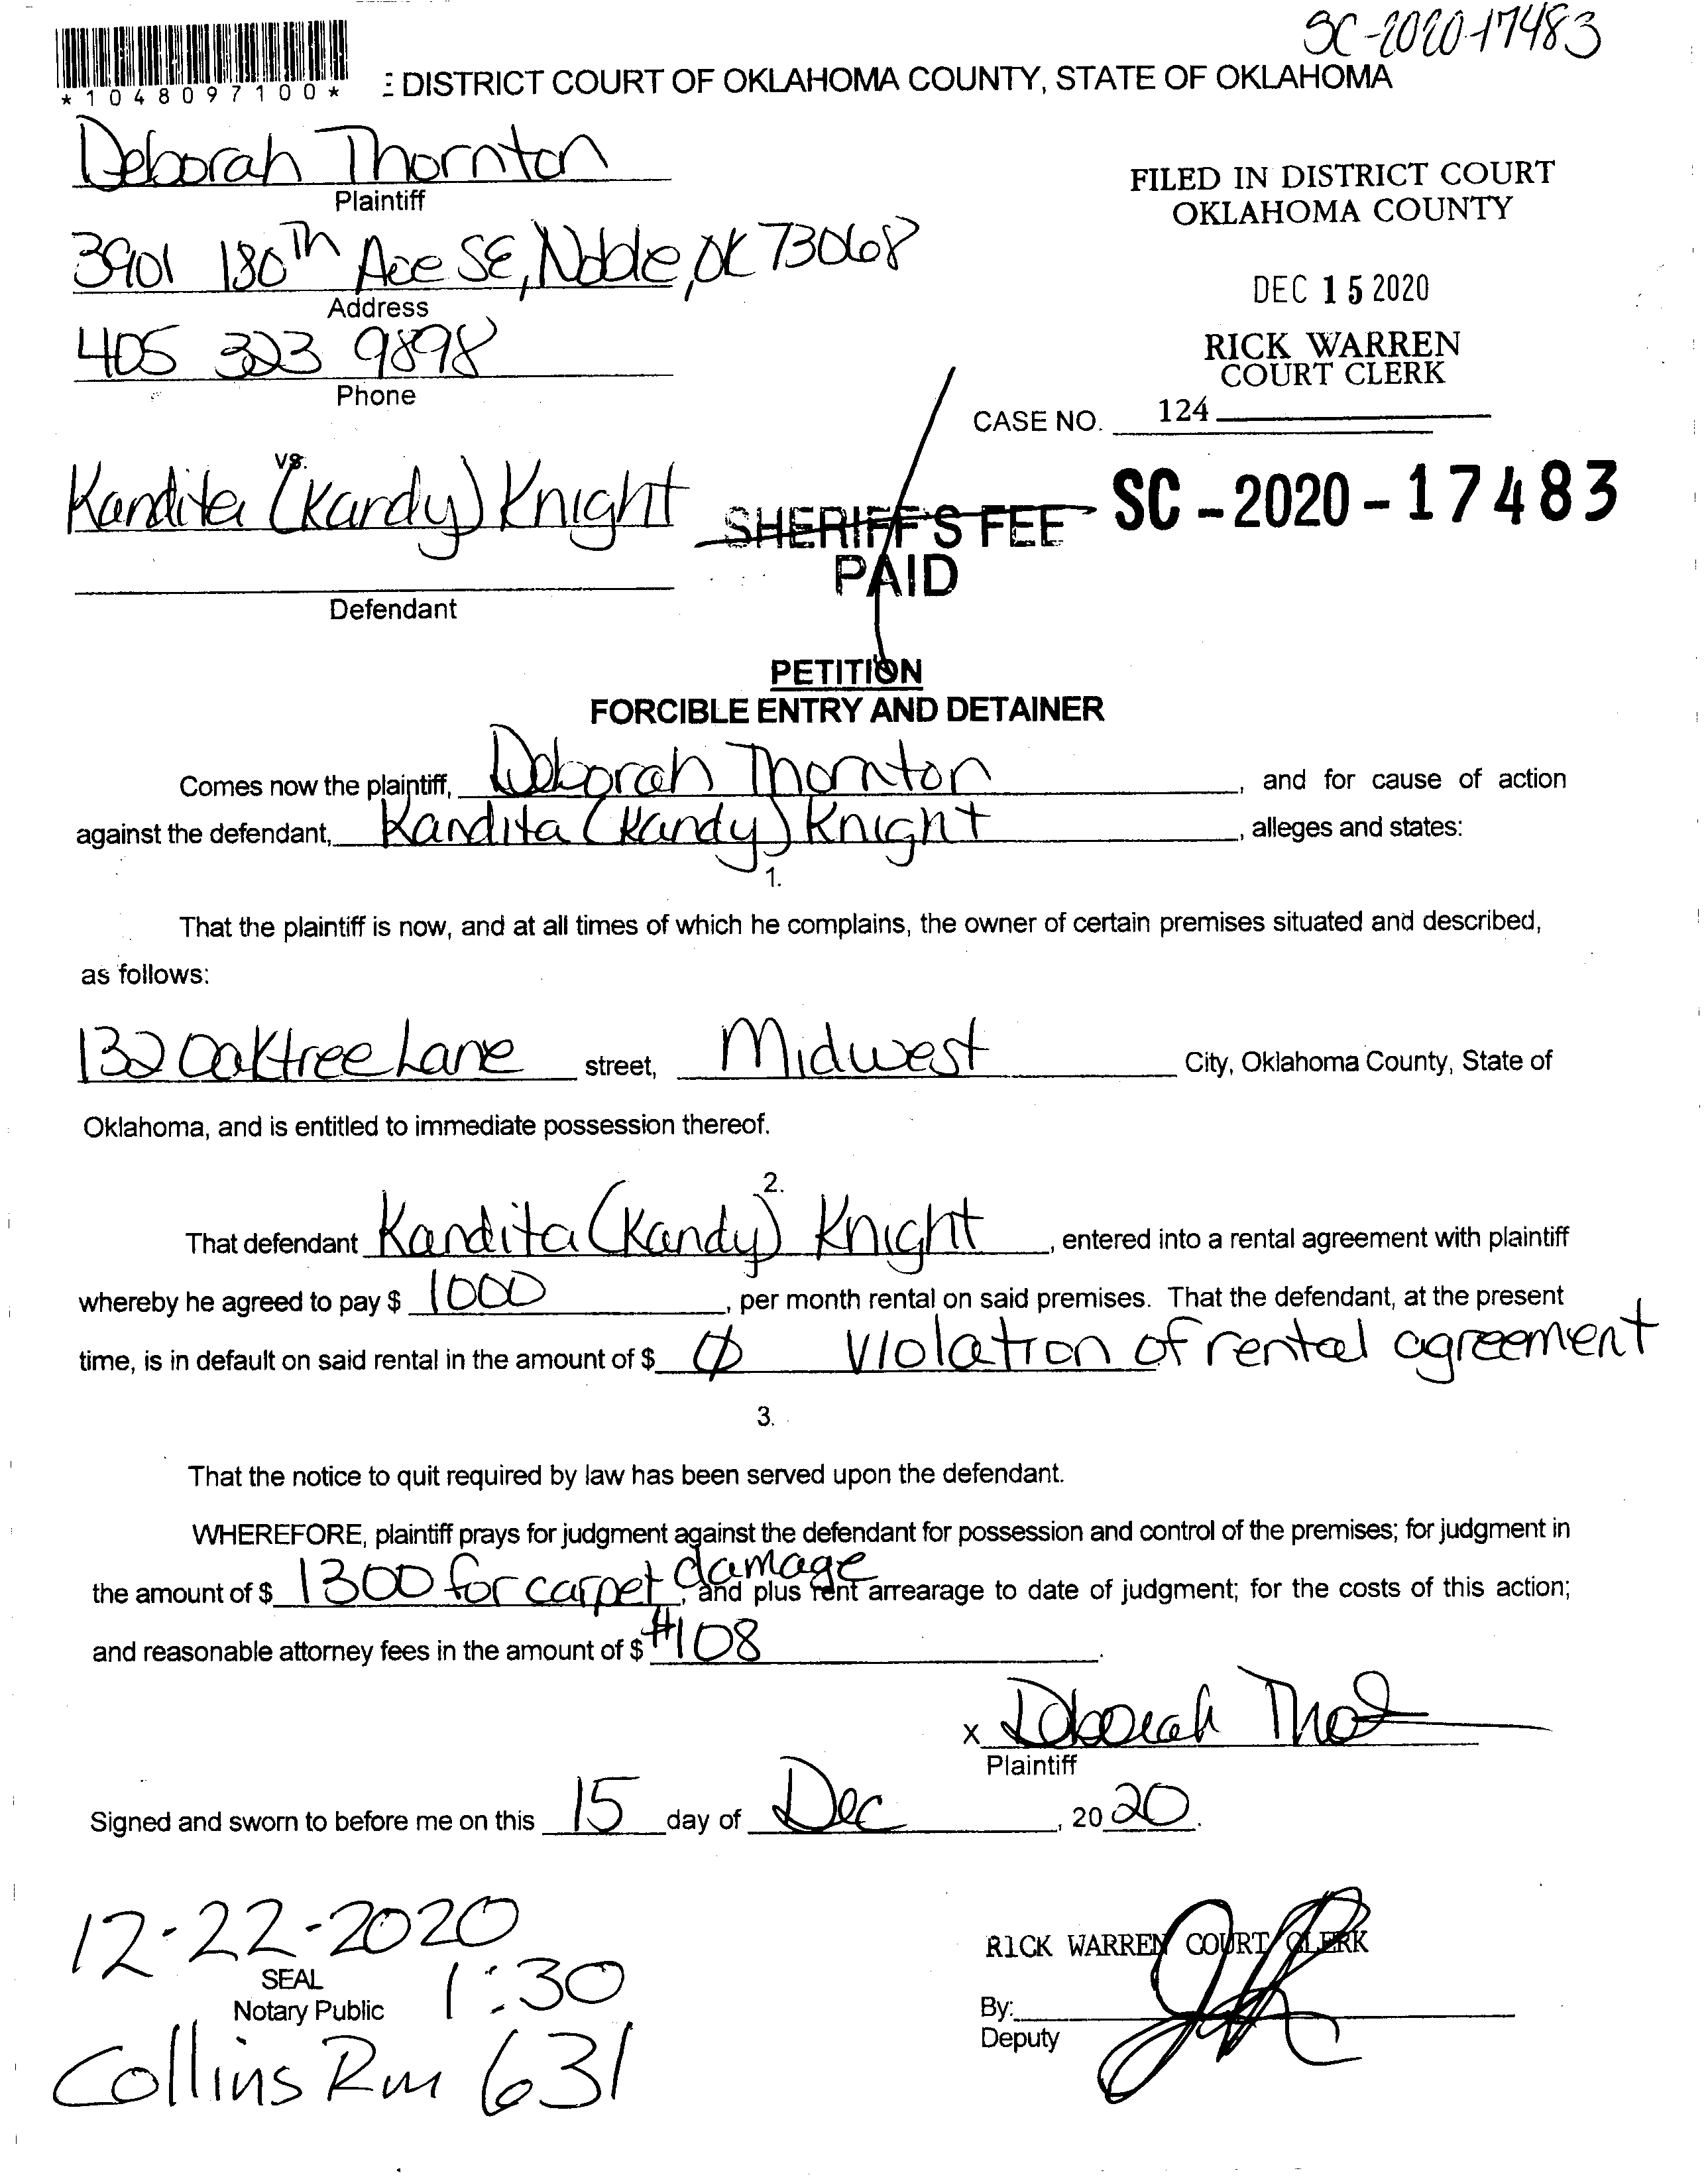 SC-2020-17483
*1048097100*
DISTRICT COURT OF OKLAHOMA COUNTY, STATE OF OKLAHOMA
Deborah Thornton
Plaintiff
3901 180th Ave SE, Noble, OK 73068
Address
405 323 9898
Phone
FILED IN DISTRICT COURT
OKLAHOMA COUNTY
DEC 15 2020
RICK WARREN
COURT CLERK
CASE NO. 124
vs.
Kandita (Kandy) Knight
Defendant
SHERIFF'S FEE
PAID
SC-2020-17483
PETITION
FORCIBLE ENTRY AND DETAINER
Comes now the plaintiff, Deborah Thornton, and for cause of action
against the defendant, Kandita (Kandy) Knight, alleges and states:
1.
That the plaintiff is now, and at all times of which he complains, the owner of certain premises situated and described,
as follows:
132 Oaktree Lane street, Midwest City, Oklahoma County, State of
Oklahoma, and is entitled to immediate possession thereof.
2.
That defendant Kandita (Kandy) Knight, entered into a rental agreement with plaintiff
whereby he agreed to pay $ 1000, per month rental on said premises. That the defendant, at the present
time, is in default on said rental in the amount of $ Ø violation of rental agreement
3.
That the notice to quit required by law has been served upon the defendant.
WHEREFORE, plaintiff prays for judgment against the defendant for possession and control of the premises; for judgment in
the amount of $ 1300 for carpet damage, and plus rent arrearage to date of judgment; for the costs of this action;
and reasonable attorney fees in the amount of $ #108.
x Deborah Thornton
Plaintiff
Signed and sworn to before me on this 15 day of Dec, 2020.
12-22-2020
SEAL
Notary Public
1:30
Collins Rm 631
RICK WARREN COURT CLERK
By:
Deputy